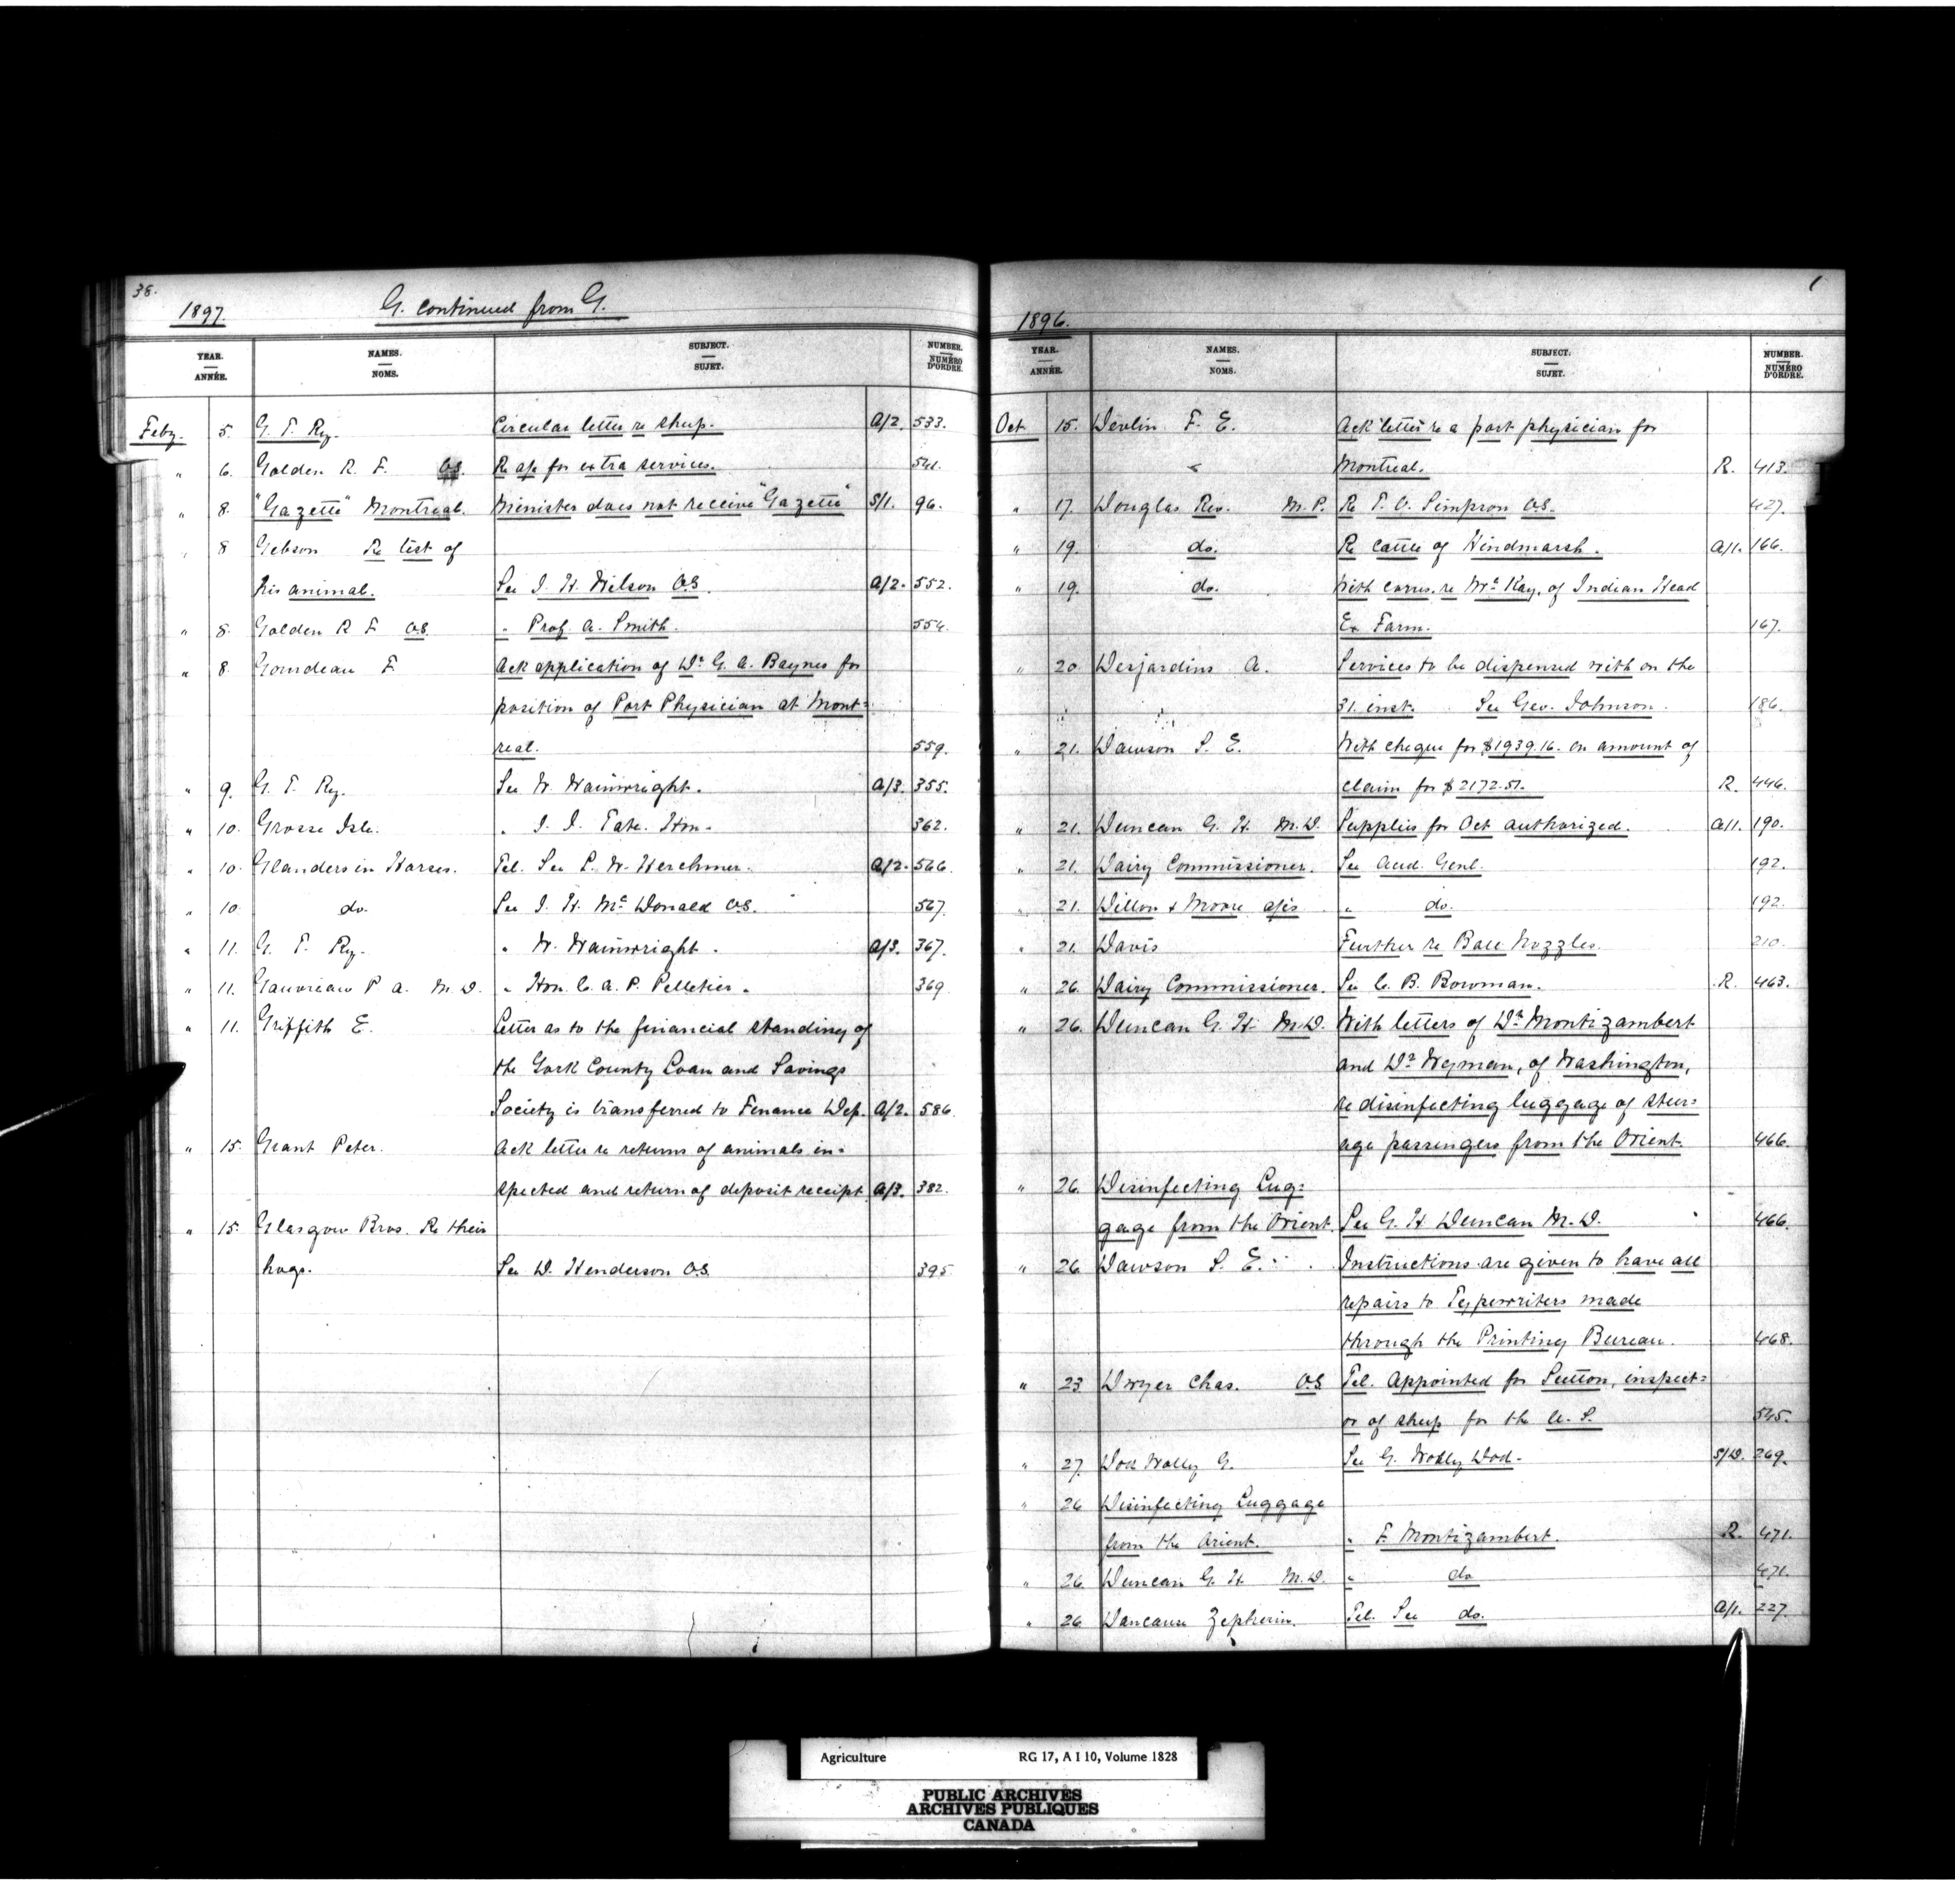 38.
1897. G. continued from G.
YEAR. ANNÉE. NAMES. NOMS. SUBJECT. SUJET. NUMBER. NUMÉRO D'ORDRE.
Feby. 5. G. T. Ry. Circular letter re sheep. A/2. 533.
" 6. Golden R. F. V.S. Re a/c for extra services. 541.
" 8. "Gazette" Montreal. Minister does not receive "Gazette" S/1. 96.
" 8 Gibson Re test of
his animal. See J. H. Wilson V.S. A/2. 552.
" 8. Golden R F V.S. " Prof. A. Smith. 554.
" 8. Gourdeau F Ack application of Dr G. A. Baynes for
position of Port Physician at Mont=
real. 559.
" 9. G. T. Ry. See W. Wainwright. A/3. 355.
" 10. Grosse Isle. " J. I. Tarte. Hon. 362.
" 10. Glanders in Horses. Tel. See L. W. Herchmer. A/2. 566.
" 10. do. See J. H. McDonald V.S. 567.
" 11. G. T. Ry. " W. Wainwright. A/3. 367.
" 11. Gauvreau P A. M.D. " Hon. C. A. P. Pelletier. 369.
" 11. Griffith E. Letter as to the financial standing of
the York County Loan and Savings
Society is transferred to Finance Dep. A/2. 586.
" 15. Grant Peter. Ack letter re returns of animals in=
spected and return of deposit receipt A/3. 382.
" 15. Glasgow Bros. Re their
hogs. See D. Henderson V.S. 395
1
1896.
YEAR. ANNÉE. NAMES. NOMS. SUBJECT. SUJET. NUMBER. NUMÉRO D'ORDRE.
Oct 15. Devlin F. E. Ack letter re a port physician for
Montreal. R. 413.
" 17. Douglas Rev. M.P. Re T. O. Simpson V.S. 427.
" 19. do. Re cattle of Hindmarsh. A/1. 166.
" 19. do. With corres. re McKay, of Indian Head
Ex Farm. 167.
" 20. Desjardins A. Services to be dispensed with on the
31. inst. See Geo. Johnson. 186.
" 21. Dawson S. E. With cheque for $1939.16. on amount of
claim for $2172.51. R. 446.
" 21. Duncan G. H. M.D. Supplies for Oct authorized. A/1. 190.
" 21. Dairy Commissioner. See Aud. Genl. 192.
" 21. Dillon & Moore a/cs " do. 192.
" 21. Davis Further re Ball Nozzles. 210.
" 26. Dairy Commissioner. See C. B. Bowman. R. 463.
" 26. Duncan G. H. M.D. With letters of Dr Montizambert
and Dr Wyman, of Washington,
re disinfecting luggage of steer=
age passengers from the Orient 466.
" 26. Disinfecting Lug=
gage from the Orient. See G. H Duncan M.D. 466.
" 26 Dawson S. E. Instructions are given to have all
repairs to Typewriters made
through the Printing Bureau. 468.
" 23 Dwyer Chas. V.S. Tel. Appointed for Sutton, inspect=
or of sheep for the U. S. 545.
" 27. Dod Wolly G. See G. Wolly Dod. S/D. 269.
" 26 Disinfecting Luggage
from the Orient. " F. Montizambert. R. 471.
" 26 Duncan G. H. M.D. " do 471.
" 26 Dancause Zepherin. Tel. See do. A/1. 227.
Agriculture RG 17, A I 10, Volume 1828
PUBLIC ARCHIVES
ARCHIVES PUBLIQUES
CANADA